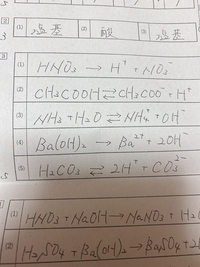 [2] (1) 塩基 (2) 酸 (3) 塩基
3
[3]
(1) HNO₃ → H⁺ + NO₃⁻
(2) CH₃COOH ⇄ CH₃COO⁻ + H⁺
(3) NH₃ + H₂O ⇄ NH₄⁺ + OH⁻
(4) Ba(OH)₂ → Ba²⁺ + 2OH⁻
(5) H₂CO₃ ⇄ 2H⁺ + CO₃²⁻
5
(1) HNO₃ + NaOH → NaNO₃ + H
(2) H₂SO₄ + Ba(OH)₂ → BaSO₄ + 2